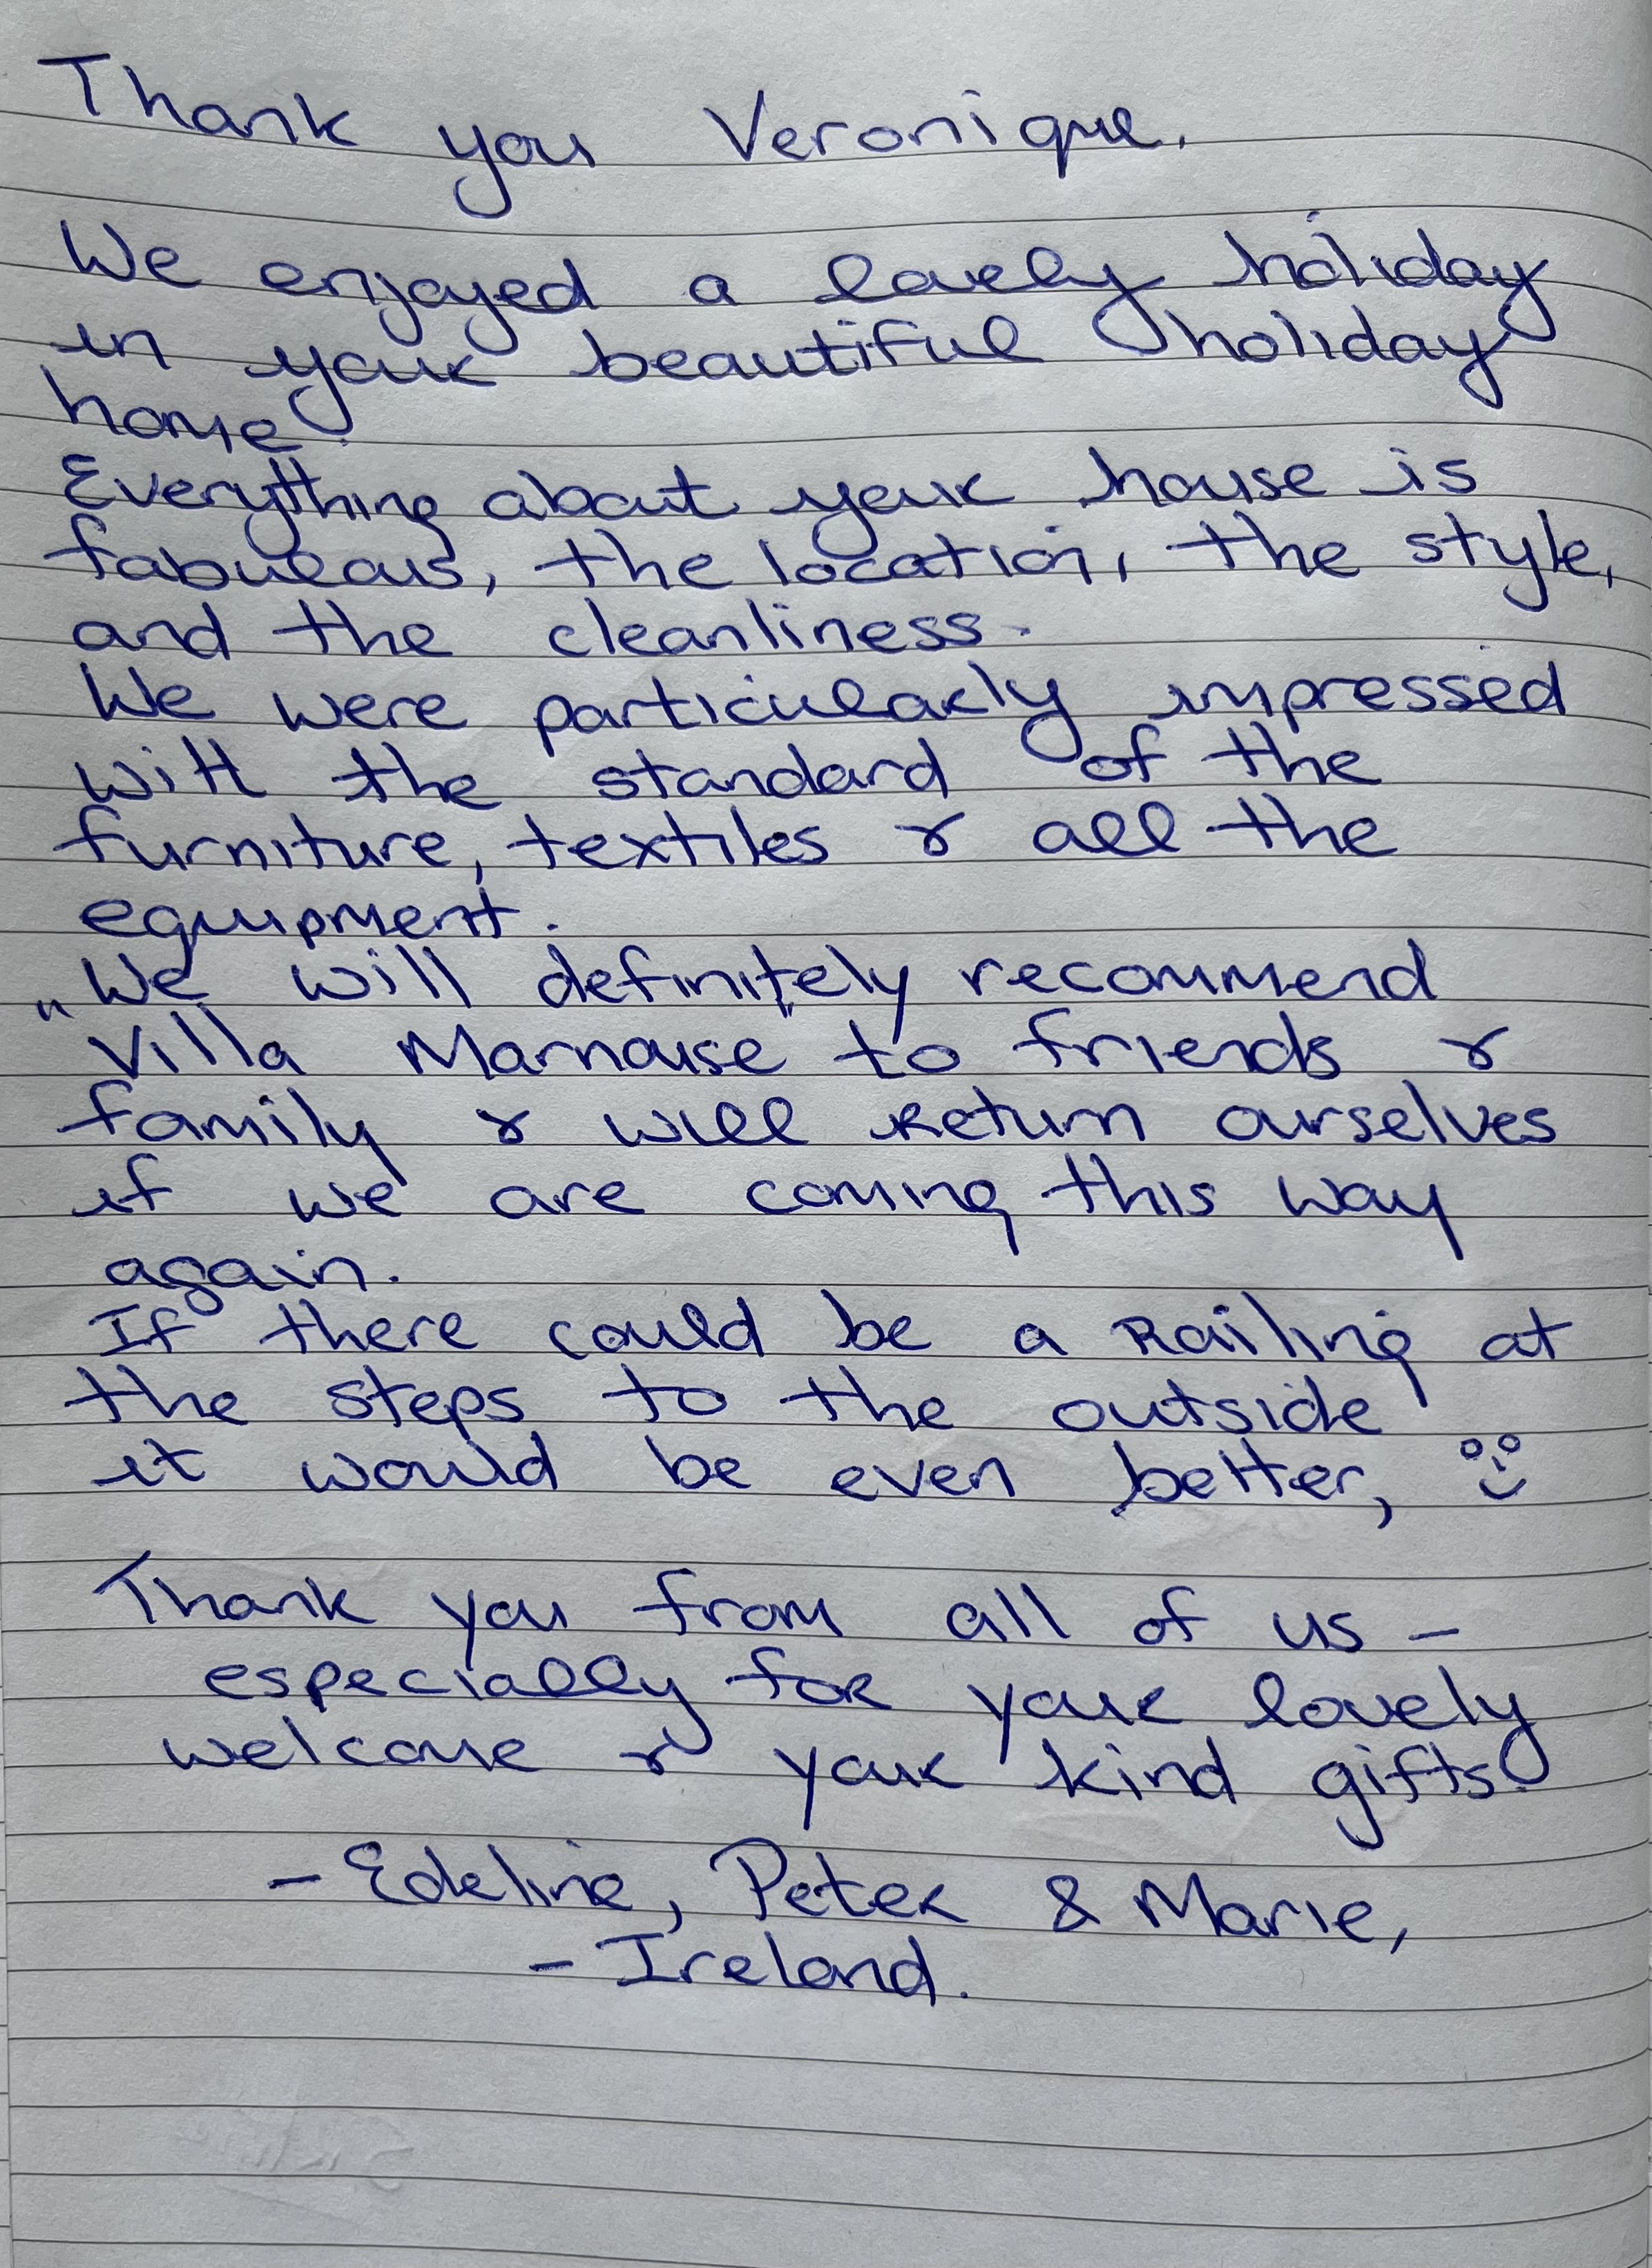 Thank you Veronique.
We enjoyed a lovely holiday
in your beautiful holiday
home.
Everything about your house is
fabulous, the location, the style,
and the cleanliness.
We were particularly impressed
with the standard of the
furniture, textiles & all the
equipment.
We will definitely recommend
"Villa Marnouse" to friends &
family & will return ourselves
if we are coming this way
again.
If there could be a railing at
the steps to the outside
it would be even better,
Thank you from all of us -
especially for your lovely
welcome & your kind gifts.
- Edeline, Peter & Marie,
- Ireland.